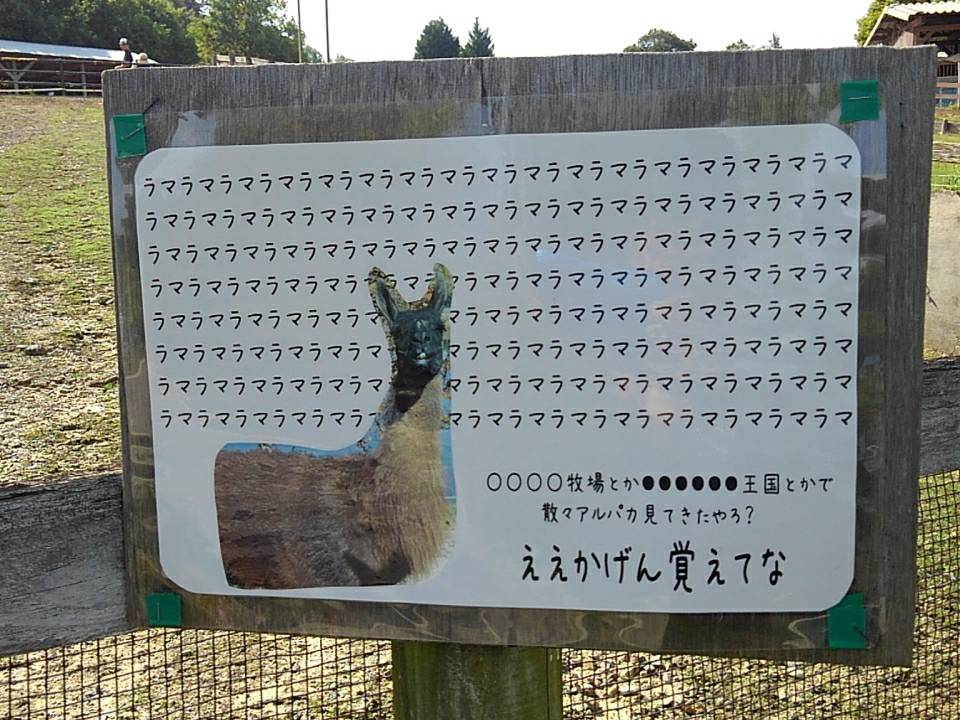 ラマラマラマラマラマラマラマラマラマラマラマラマラマラマラマラマラマ
ラマラマラマラマラマラマラマラマラマラマラマラマラマラマラマラマラマ
ラマラマラマラマラマラマラマラマラマラマラマラマラマラマラマラマラマ
ラマラマラマラマラマラマラマ マラマラマラマラマラマラマラマラマラマ
ラマラマラマラマラマラマ マラマラマラマラマラマラマラマラマラマ
ラマラマラマラマラマラマ マラマラマラマラマラマラマラマラマラマ
ラマラマラマラマラマラマ マラマラマラマラマラマラマラマラマラマ
ラマラマラマラマラマラマ マラマラマラマラマラマラマラマラマラマ
○○○○牧場とか●●●●●●王国とかで
散々アルパカ見てきたやろ?
ええかげん覚えてな